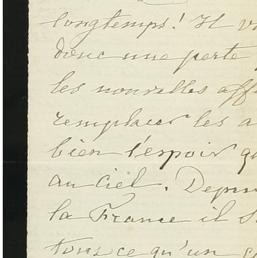 longtemps! Il v
donc une perte
les nouvelles aff
remplacer les a
bien l'espoir qu
au ciel. Depui
la France il s
tous ce qu'un